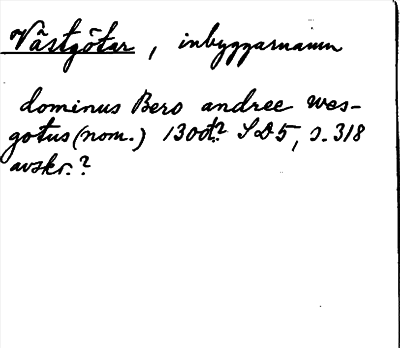 Västgötar, inbyggarnamn
dominus Bero andree wes-
gotus (nom.) 1300t? SD5, s. 318
avskr.?